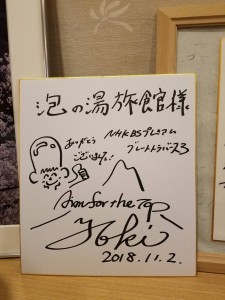 泡の湯旅館様
ありがとう
ございます!
NHKBSプレミアム
グレートトラバース3
Aim for the Top
Yoki
2018.11.2.